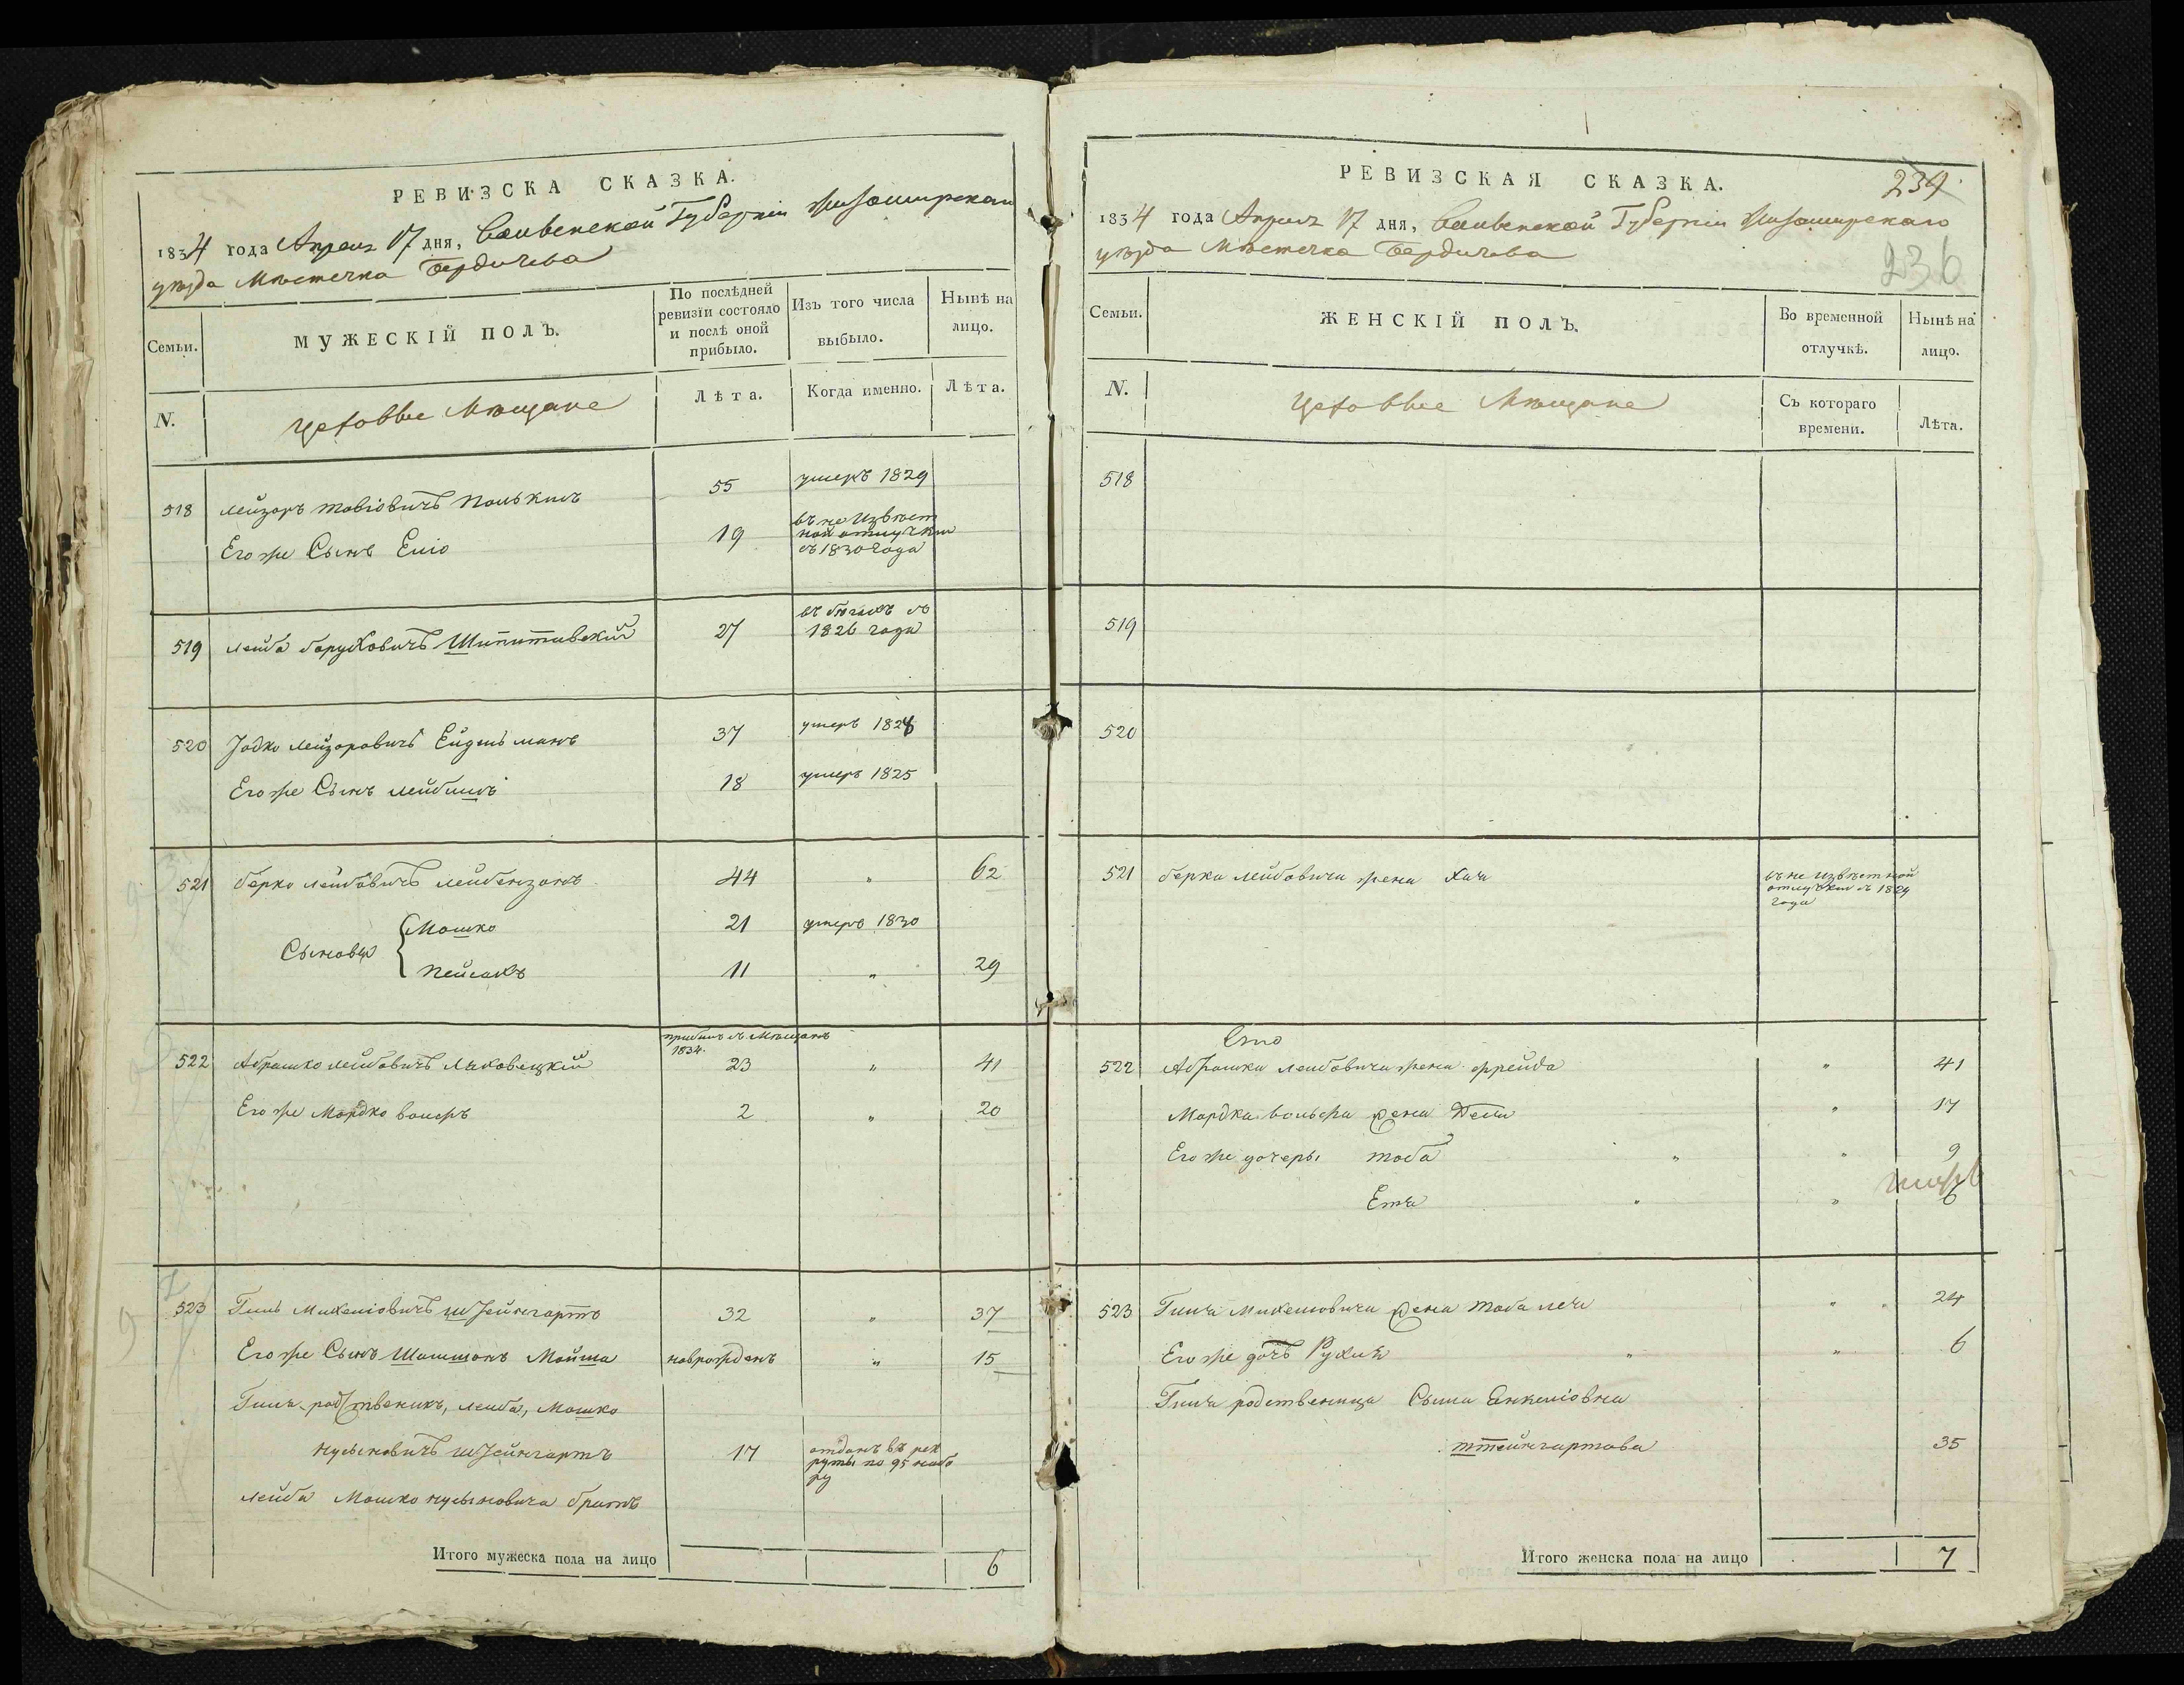 РЕВИЗСКА СКАЗКА.
1834 года Апреля 17 дня, Волынской Губернiи Житомирскаго
уѣзда Мѣстечка Бердичева
Семьи.
МУЖЕСКІЙ ПОЛЪ.
По послѣдней
ревизіи состояло
и послѣ оной
прибыло.
Изъ того числа
выбыло.
Нынѣ на
лицо.
N.
Цеховые Мѣщане
Лѣта.
Когда именно.
Лѣта.
518 Лейзоръ Товіовичъ 55 умеръ 1829
Его же Сынъ Еліо 19 въ не извѣст
ной отлучки
съ 1830 года
519 Лейба Боруховичъ Шипитивскій 27 въ бѣгахъ съ
1826 года
520 Лейзоровичъ 37 умеръ 1828
Его же Сынъ Лейбишъ 18 умеръ 1825
521 Берко Лейбовичъ Лейбензонъ 44 " 62
Сыновья Мошко 21 умеръ 1830
Пейсахъ 11 " 29
прибылъ съ Мѣщанъ
1834.
522 Абрашко Лейбовичъ Ляховецкій 23 " 41
Его же Мордко Вольфъ 2 " 20
523 Гиль Михеліовичъ Штейнгартъ 32 " 37
Его же Сынъ Шимшонъ Мойша новрожденъ " 15
Гиля родственикъ, Лейба, Мошко
Нусыновичъ Штейнгартъ 17 отданъ въ рек
руты по 95 набо
ру
Лейба Мошко Нусыновича братъ
Итого мужеска пола на лицо 6
РЕВИЗСКАЯ СКАЗКА.
239
1834 года Апреля 17 дня, Волынской Губернiи Житомирскаго
236
уѣзда Мѣстечка Бердичева
Семьи.
ЖЕНСКІЙ ПОЛЪ.
Во временной
отлучкѣ.
Нынѣ на
лицо.
N.
Цеховые Мѣщане
Съ котораго
времени.
Лѣта.
518
519
520
521 Берка Лейбовича жена Хая въ не извѣстной
отлучки съ 1829
года
522 Абрашки Лейбовича жена Фрейда " 41
Мордка Вольфа жена " 17
Его же дочеры Тоба " " 9
" " 6
523 Гиля Михеліовича жена Тоба Лея " " 24
Его же дочъ Рухля " " 6
Гиля родственица Сыма Енкеліовна
Штейнгартова 35
Итого женска пола на лицо 7